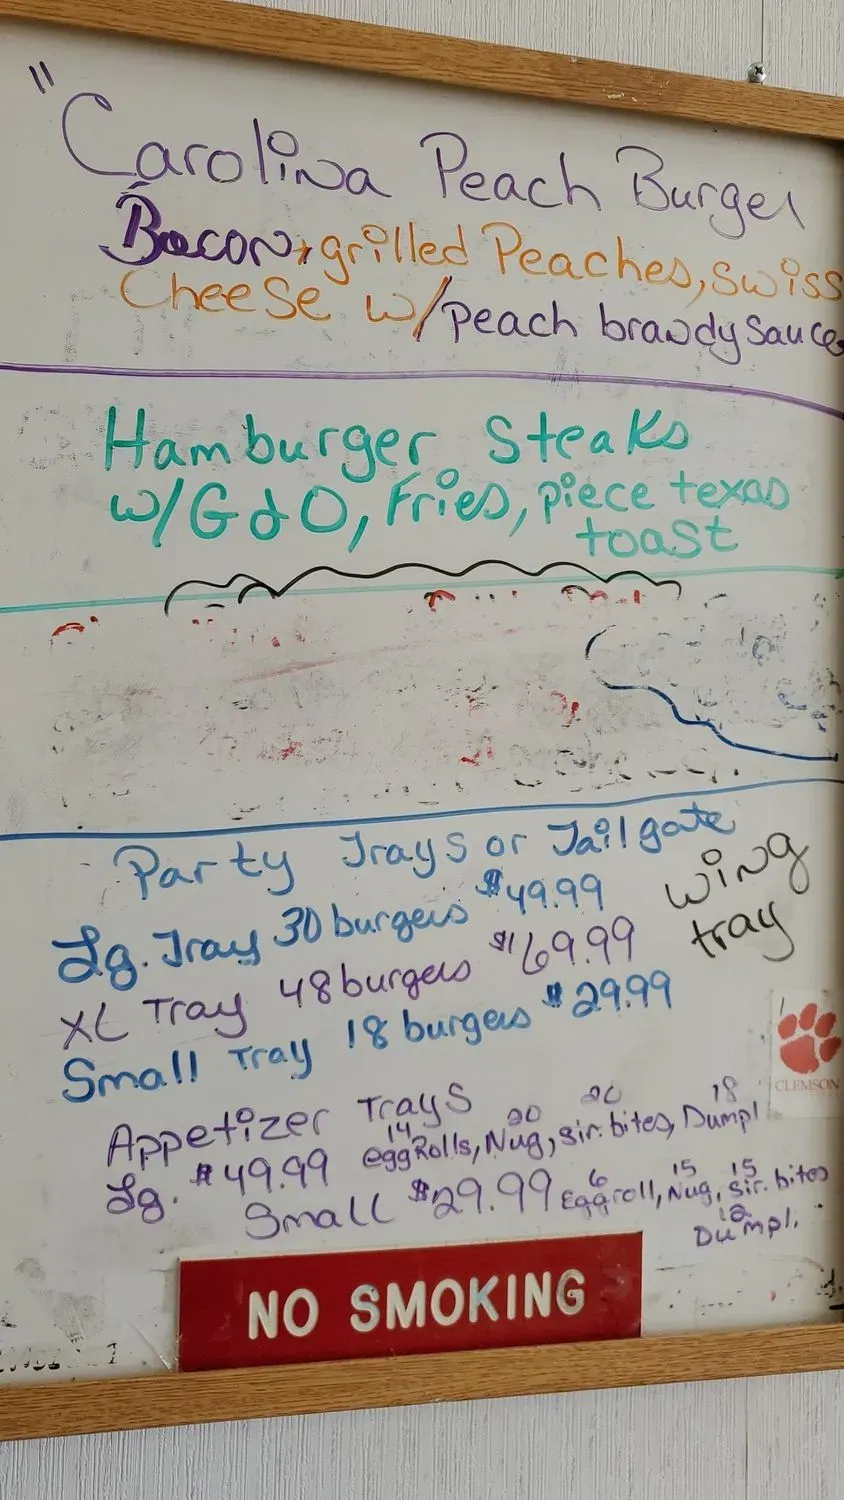 "Carolina Peach Burger
Bacon, grilled Peaches, swiss
Cheese w/peach brandy sauce
Hamburger Steaks
w/G&O, Fries, piece texas
toast
Party Trays or Tailgate
Lg. Tray 30 burgers $49.99
XL Tray 48 burgers $69.99
Small Tray 18 burgers $29.99
wing
tray
CLEMSON
Appetizer Trays
14 20 20 18
Lg. $49.99 eggRolls, Nug, sir. bites, Dumpl
6 15 15
Small $29.99 Eggroll, Nug, sir. bites
12
Dumpl.
NO SMOKING